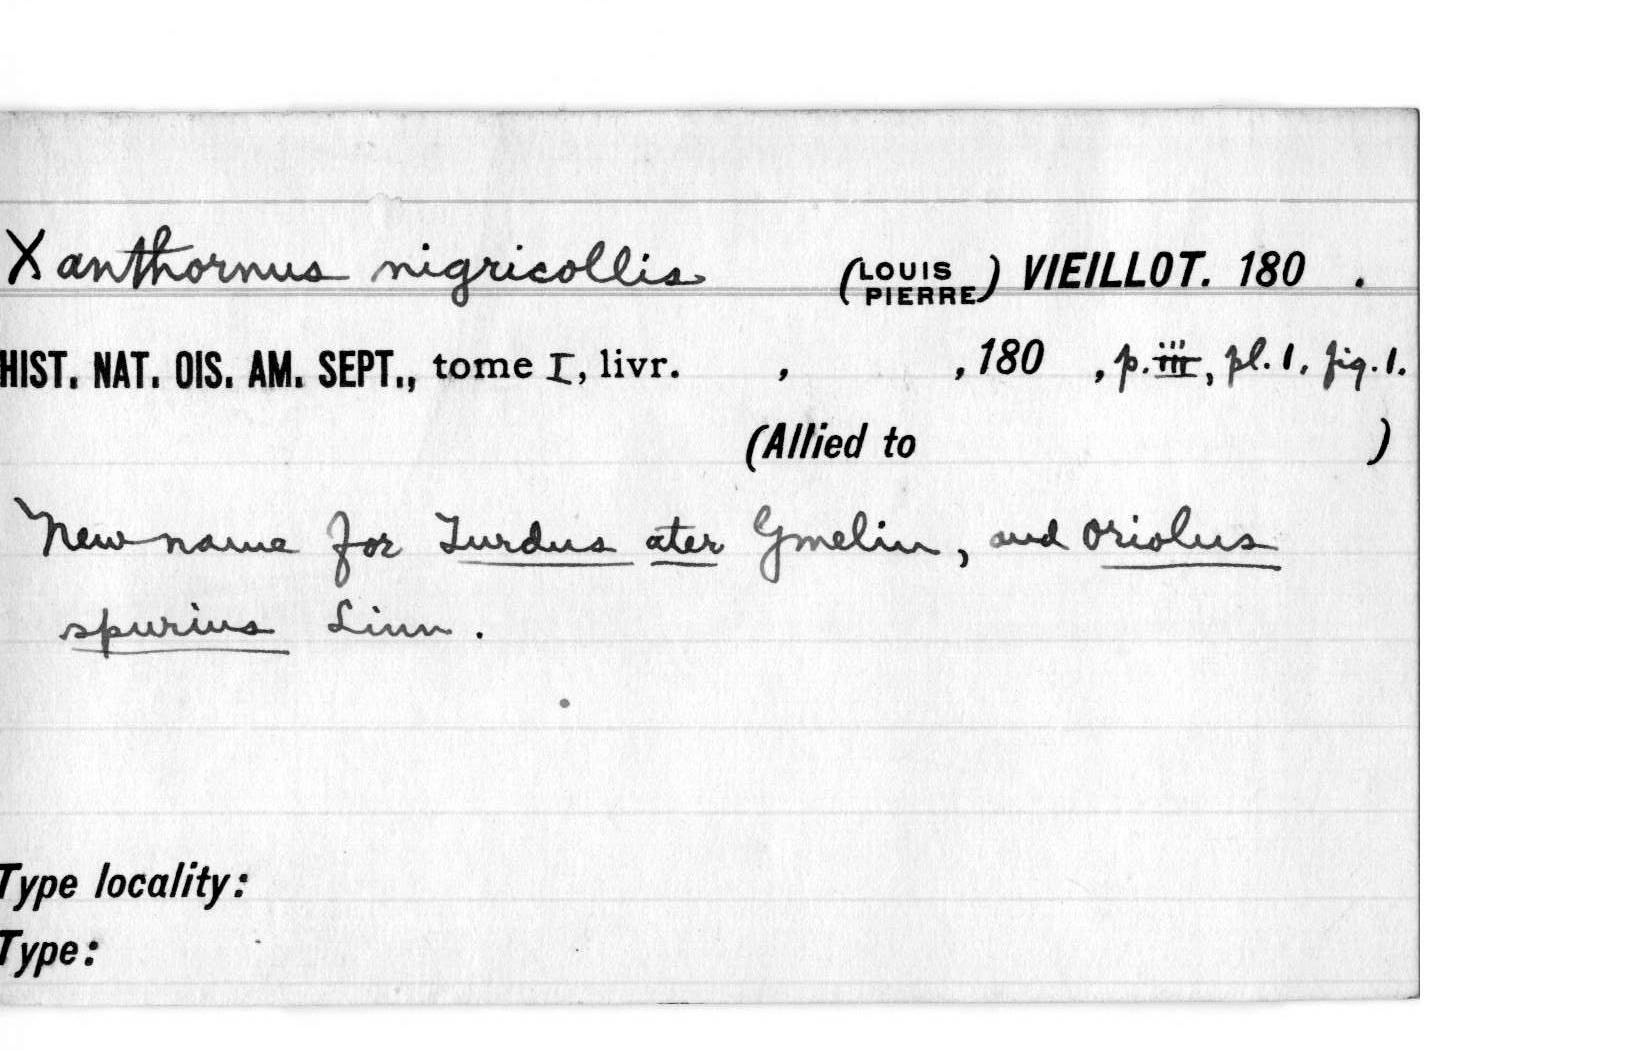 Xanthornus nigricollis (LOUIS PIERRE) VIEILLOT. 180 .
HIST. NAT. OIS. AM. SEPT., tome I, livr. , , 180 , p. iii, pl. 1, fig. 1.
(Allied to )
New name for Turdus ater Gmelin, and Oriolus
spurius Linn.
Type locality:
Type: